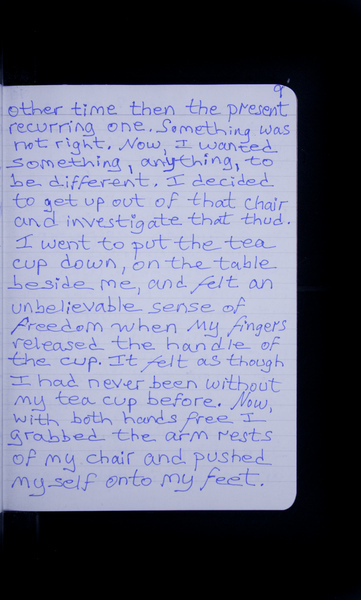 9
other time then the present
recurring one. Something was
not right. Now, I wanted
something, anything, to
be different. I decided
to get up out of that chair
and investigate that thud.
I went to put the tea
cup down, on the table
beside me, and felt an
unbelievable sense of
freedom when my fingers
released the handle of
the cup. It felt as though
I had never been without
my tea cup before. Now,
with both hands free I
grabbed the arm rests
of my chair and pushed
myself onto my feet.